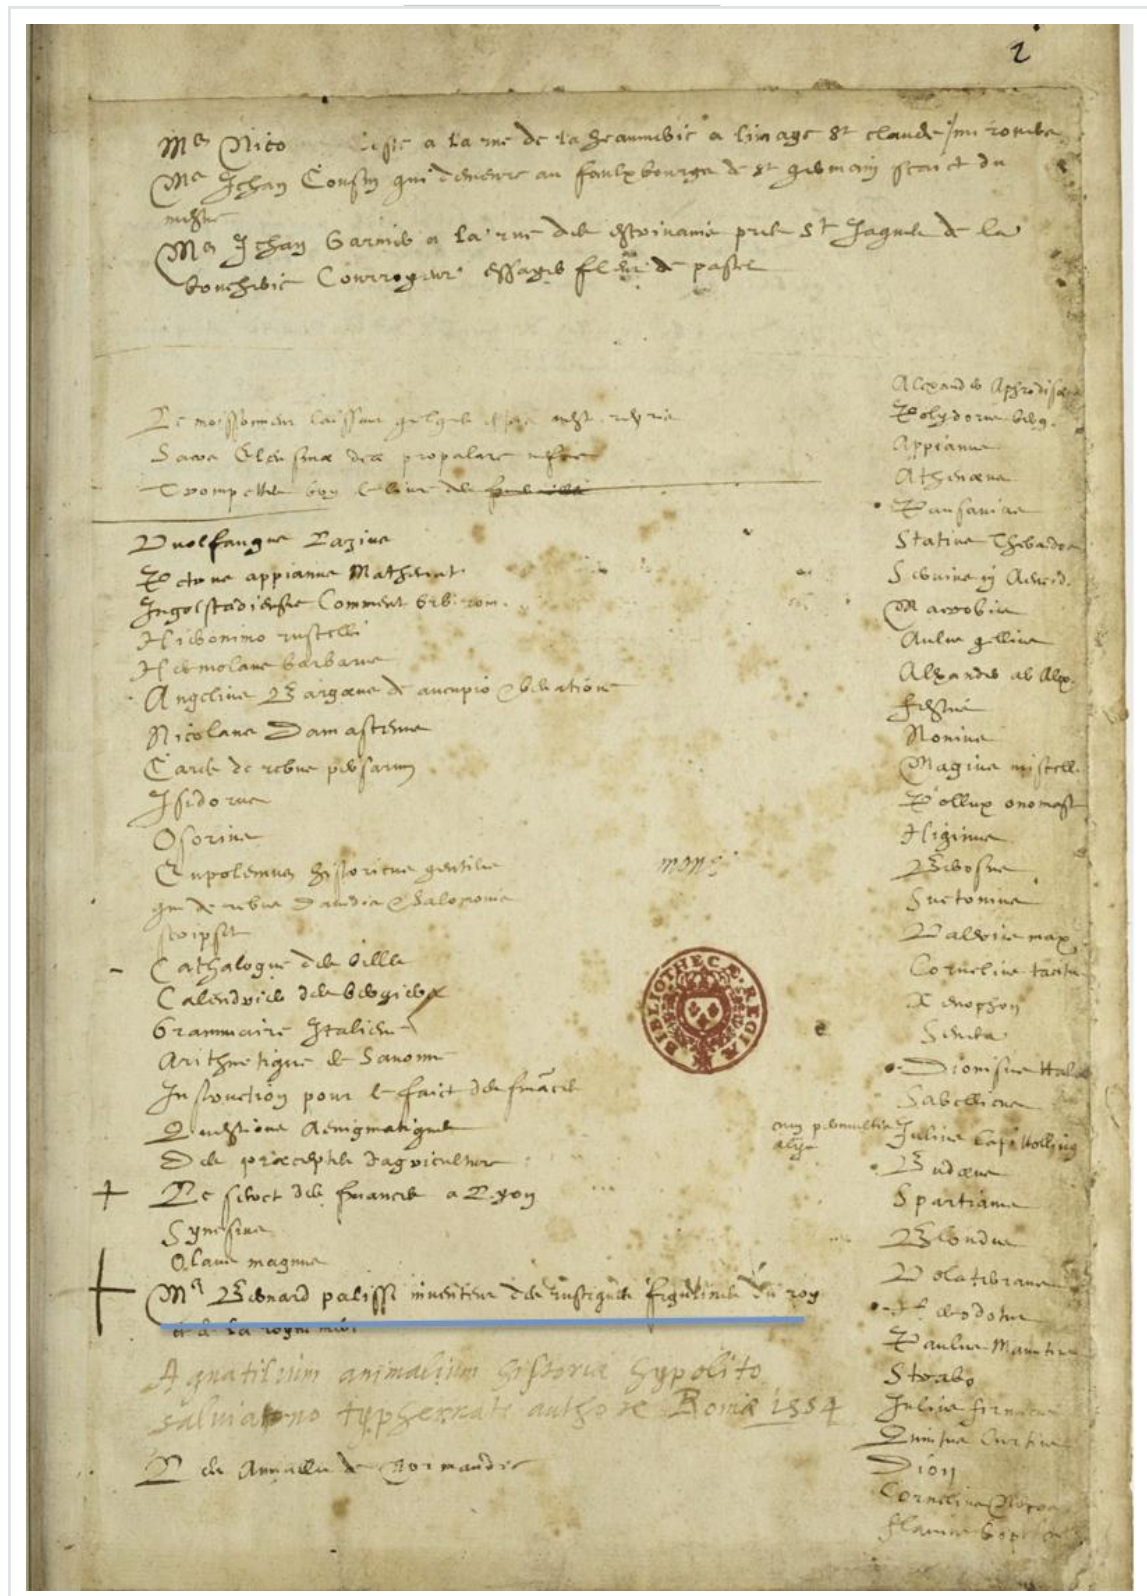 2
Me Nico a la rue de la heaumerie a limage St claude
Me Jehan Cousin qui demeure au faulxbourgs de St germain scaict du
mestre
Me Jehan Garnier a la rue des estvinami pres St Jaques de la
boucherie Courroyeur essayer fleur de pastel
Le moissonneur laissant quelques
Sacra Eleusinae deae propalare nefas
Trompettes
Vuolfangus Lazius
Petrus appianus Mathemat.
Ingolstadiensis Comment Urb. rom.
Hieronimo ruscelli
Hermolaus barbarus
Angelius Bargaeus de aucupio & venatione
Nicolaus Damascenus
de rebus persarum
Isidorus
Osorius
Eupolemus historicus gentilis
qui de rebus Davidis & Salomonis
scripsit
Cathalogue des villes
Calendrier des bergiers
Grammaire Italiene
Arithmetique de Savonne
Instruction pour le faict des finances
Questions Aenigmatiques
Des preceptes dagriculture
Le secret des finances a Lyon
Synesius
Olaus magnus
Me Bernard palissi inventeur des rustiques figulines du roy
et de la royne mere
Aquatilium animalium historia hypolito
salviano typhernate authore Romæ 1554
Les Annalles de Normandie
mons
BIBLIOTHECÆ REGIÆ
Alexander Aphrodisaeus
Polydorus verg.
Appianus
Athenaeus
Pausanias
Statius Thebaidos
Servius in Aeneid.
Macrobius
Aulus gellius
Alexander ab Alex.
festus
Nonius
Magius miscell.
Pollux onomast
Higinus
Berosus
Suetonius
Valerius max.
Cornelius tacitus
Xenophon
Seneca
Dionisius Hali
Sabellicus
cum permultis
aliis
Julius Capitollinus
Budaeus
Spartianus
Blondus
Volaterranus
Herodotus
Paulus Manutius
Strabo
Julius firmicus
Quintus Curtius
Dion
Cornelius Nepos
flavius Vopiscus